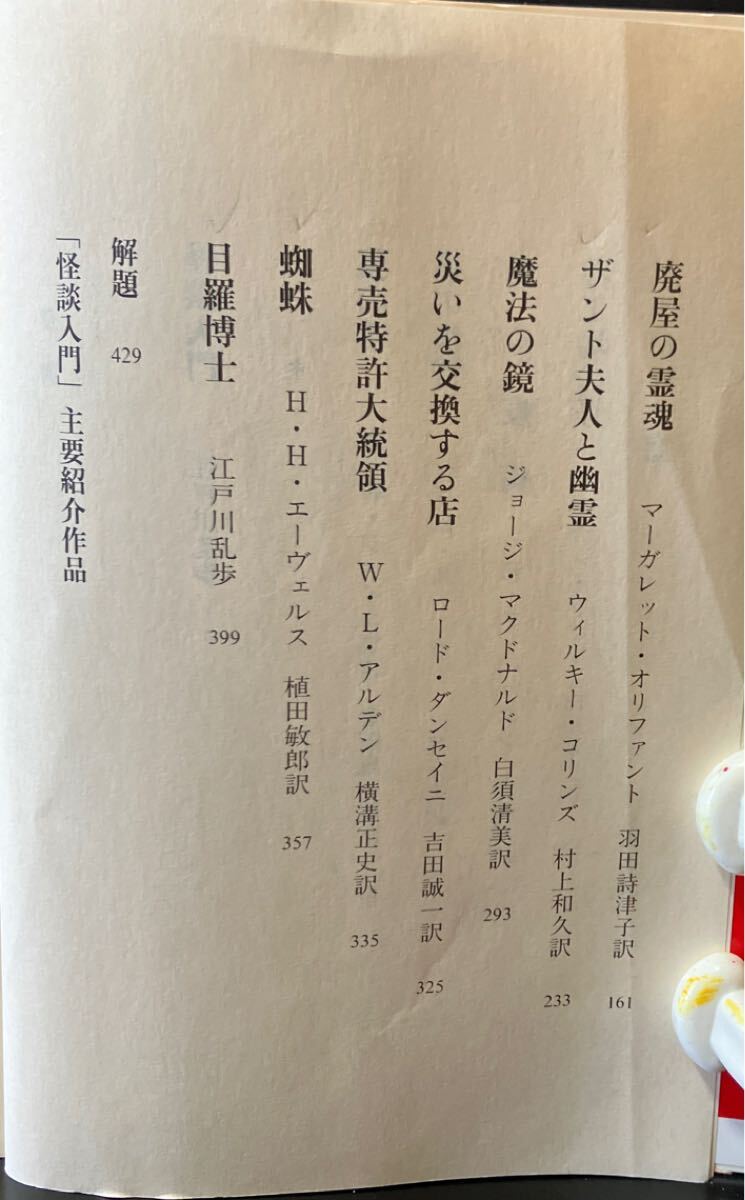 廃屋の霊魂　マーガレット・オリファント　羽田詩津子訳　161
ザント夫人と幽霊　ウィルキー・コリンズ　村上和久訳　233
魔法の鏡　ジョージ・マクドナルド　白須清美訳　293
災いを交換する店　ロード・ダンセイニ　吉田誠一訳　325
専売特許大統領　W・L・アルデン　横溝正史訳　335
蜘蛛　H・H・エーヴェルス　植田敏郎訳　357
目羅博士　江戸川乱歩　399
解題　429
「怪談入門」主要紹介作品